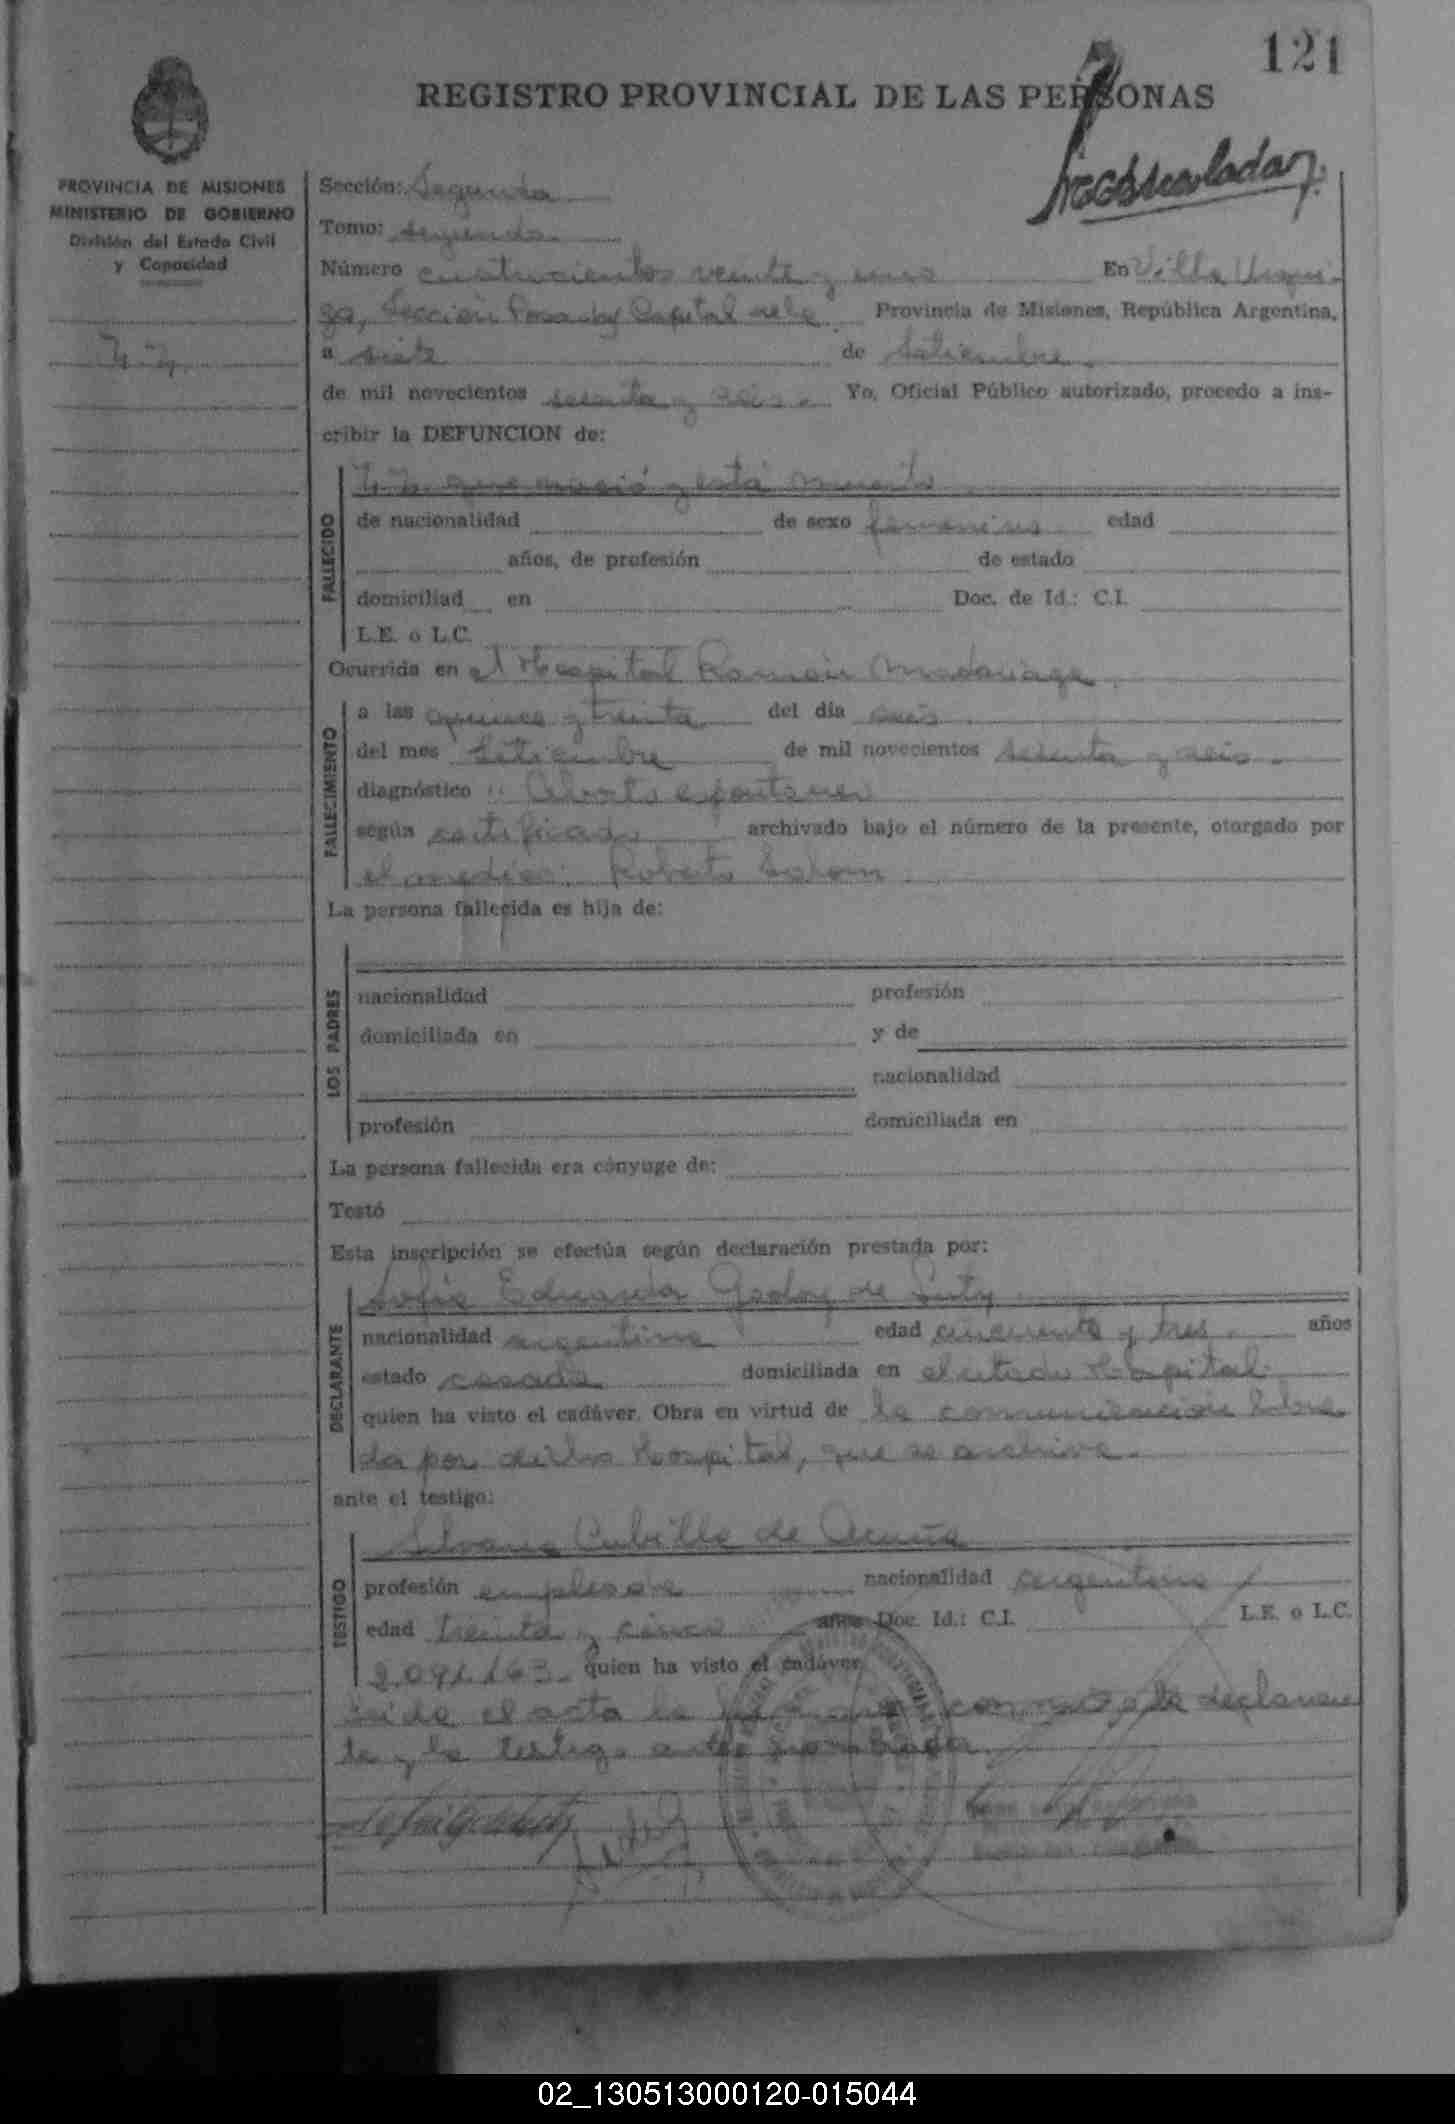 121
REGISTRO PROVINCIAL DE LAS PERSONAS
PROVINCIA DE MISIONES
MINISTERIO DE GOBIERNO
División del Estado Civil
y Capacidad
N.N.
Sección: Segunda
Tomo: segundo
Número cuatrocientos veinte y uno En Villa Urqui-
za, Sección Posadas Capital de la Provincia de Misiones, República Argentina,
a siete de Setiembre
de mil novecientos sesenta y seis. Yo, Oficial Público autorizado, procedo a ins-
cribir la DEFUNCION de:
FALLECIDO
N.N. que nació y está muerto
de nacionalidad de sexo femenino edad
años, de profesión de estado
domiciliad en Doc. de Id.: C.I.
L.E. o L.C.
Ocurrida en el Hospital Ramón Madariaga
FALLECIMIENTO
a las quince y treinta del día seis
del mes Setiembre de mil novecientos sesenta y seis.
diagnóstico: Aborto espontaneo
según certificado archivado bajo el número de la presente, otorgado por
el medico: Roberto
La persona fallecida es hija de:
LOS PADRES
nacionalidad profesión
domiciliada en y de
nacionalidad
profesión domiciliada en
La persona fallecida era cónyuge de:
Testó
Esta inscripción se efectúa según declaración prestada por:
DECLARANTE
Sofia Eduarda Godoy de
nacionalidad argentina edad cincuenta y tres. años
estado casada domiciliada en el citado Hospital
quien ha visto el cadáver. Obra en virtud de la comunicación libra
da por dicho Hospital, que se archiva.
ante el testigo:
TESTIGO
Silvana Cubilla de Acuña
profesión empleada nacionalidad argentina
edad treinta y cinco años Doc. Id.: C.I. L.E. o L.C.
2.091.163. quien ha visto el cadáver
Leída el acta la firman conmigo la declaran
te y la testigo antes nombrada.
02_130513000120-015044